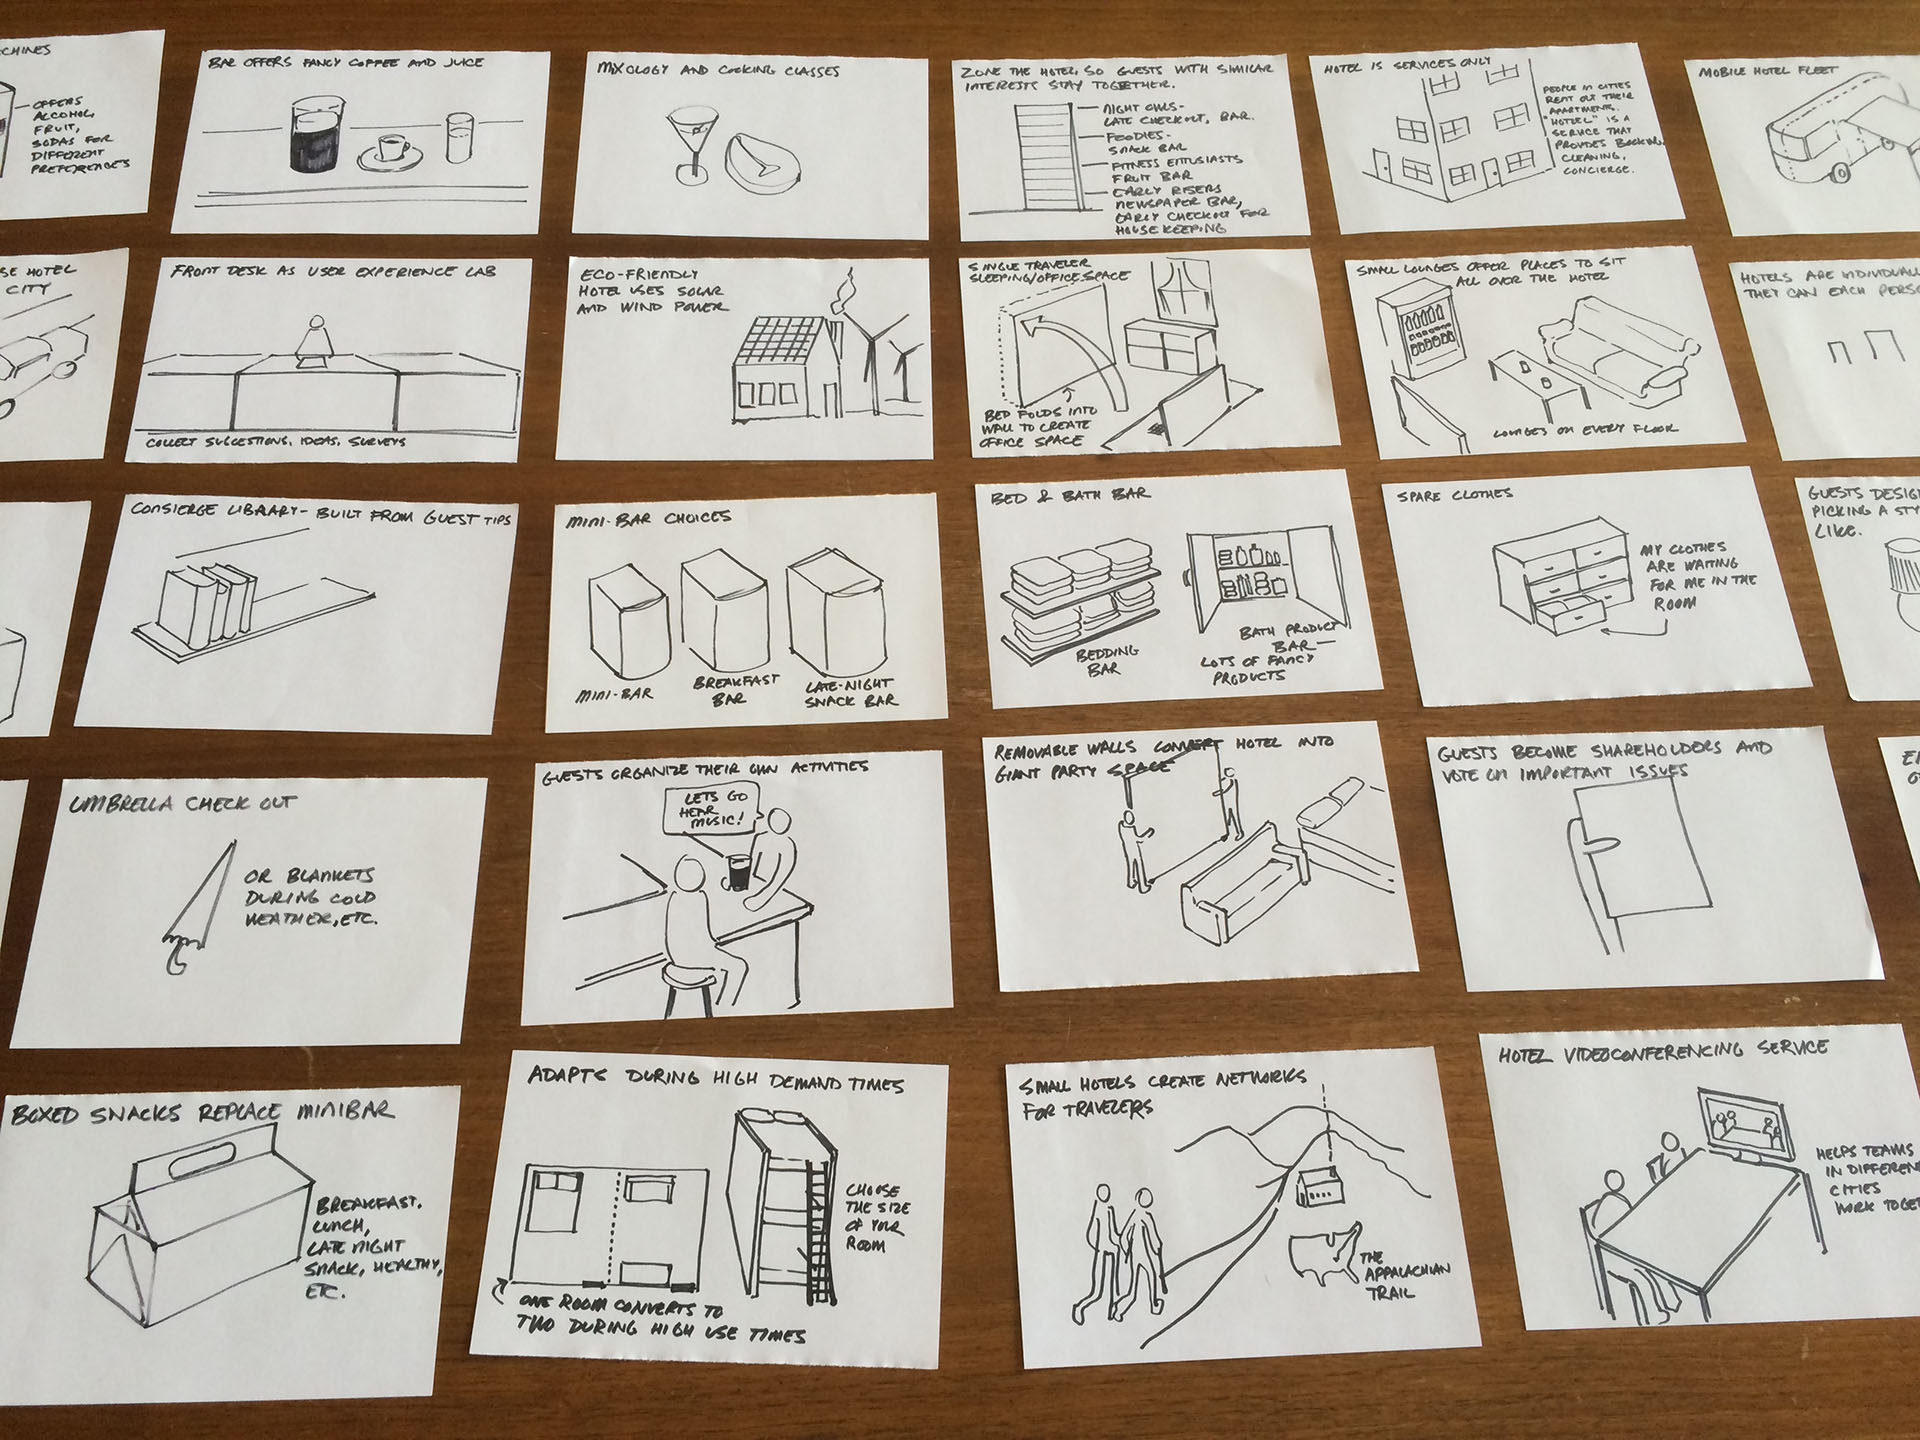 OFFERS
ALCOHOL,
FRUIT,
SODAS FOR
DIFFERENT
PREFERENCES
BAR OFFERS FANCY COFFEE AND JUICE
MIXOLOGY AND COOKING CLASSES
ZONE THE HOTEL SO GUESTS WITH SIMILAR
INTERESTS STAY TOGETHER.
NIGHT OWLS-
LATE CHECKOUT, BAR.
FOODIES-
SNACK BAR
FITNESS ENTHUSIASTS
FRUIT BAR
EARLY RISERS
NEWSPAPER BAR,
EARLY CHECKOUT FOR
HOUSEKEEPING
HOTEL IS SERVICES ONLY
PEOPLE IN CITIES
RENT OUT THEIR
APARTMENTS.
"HOTEL" IS A
SERVICE THAT
PROVIDES BOOKING,
CLEANING,
CONCIERGE.
MOBILE HOTEL FLEET
HOTEL
CITY
FRONT DESK AS USER EXPERIENCE LAB
COLLECT SUGGESTIONS, IDEAS, SURVEYS
ECO-FRIENDLY
HOTEL USES SOLAR
AND WIND POWER
SINGLE TRAVELER
SLEEPING/OFFICE SPACE
BED FOLDS INTO
WALL TO CREATE
OFFICE SPACE
SMALL LOUNGES OFFER PLACES TO SIT
ALL OVER THE HOTEL
LOUNGES ON EVERY FLOOR
HOTELS ARE
THEY CAN EACH
CONSIERGE LIBRARY- BUILT FROM GUEST TIPS
MINI-BAR CHOICES
MINI-BAR
BREAKFAST
BAR
LATE-NIGHT
SNACK BAR
BED & BATH BAR
BEDDING
BAR
BATH PRODUCT
BAR—
LOTS OF FANCY
PRODUCTS
SPARE CLOTHES
MY CLOTHES
ARE WAITING
FOR ME IN THE
ROOM
GUESTS
PICKING A
LIKE.
UMBRELLA CHECK OUT
OR BLANKETS
DURING COLD
WEATHER, ETC.
GUESTS ORGANIZE THEIR OWN ACTIVITIES
LETS GO
HEAR
MUSIC!
REMOVABLE WALLS CONVERT HOTEL INTO
GIANT PARTY SPACE
GUESTS BECOME SHAREHOLDERS AND
VOTE ON IMPORTANT ISSUES
BOXED SNACKS REPLACE MINIBAR
BREAKFAST,
LUNCH,
LATE NIGHT
SNACK, HEALTHY,
ETC.
ADAPTS DURING HIGH DEMAND TIMES
CHOOSE
THE SIZE
OF YOUR
ROOM
ONE ROOM CONVERTS TO
TWO DURING HIGH USE TIMES
SMALL HOTELS CREATE NETWORKS
FOR TRAVELERS
THE
APPALACHIAN
TRAIL
HOTEL VIDEOCONFERENCING SERVICE
HELPS TEAMS
IN
CITIES
WORK